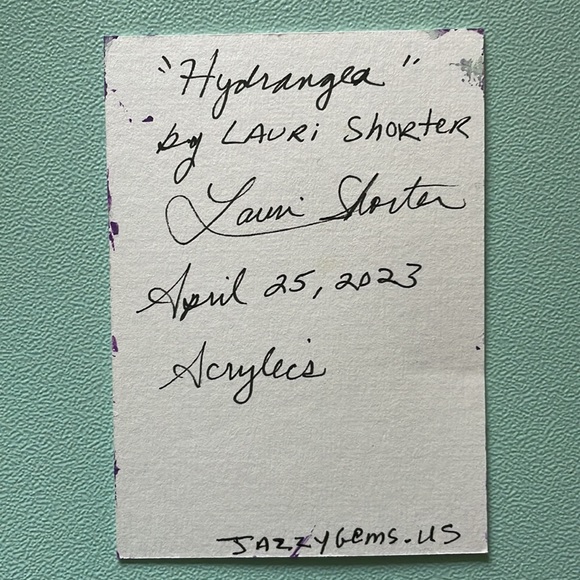 "Hydrangea"
by LAURi ShORTER
Lauri Shorter
April 25, 2023
Acrylics
JAZZYGems.US